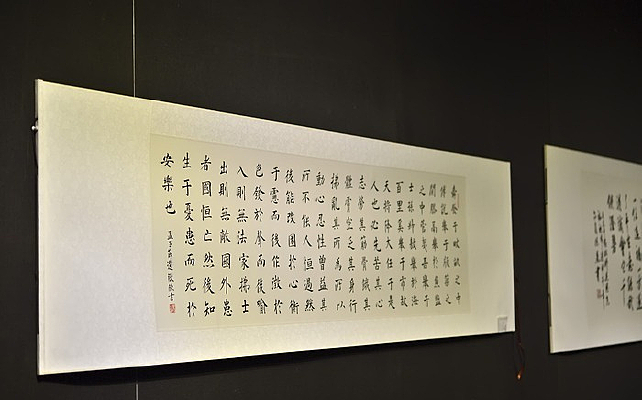 舜發于畎畝之中
傅說舉于版築之
間膠鬲舉於魚鹽
之中管夷吾舉于
士孫叔敖舉於海
百里奚舉于市故
天將降大任于是
人也必先苦其心
志勞其筋骨餓其
體膚空乏其身行
拂亂其所為所以
動心忍性曾益其
所不能人恒過然
後能改困於心衡
于慮而後作徵於
色發於聲而後喻
入則無法家拂士
出則無敵國外患
者國恒亡然後知
生于憂患而死於
安樂也